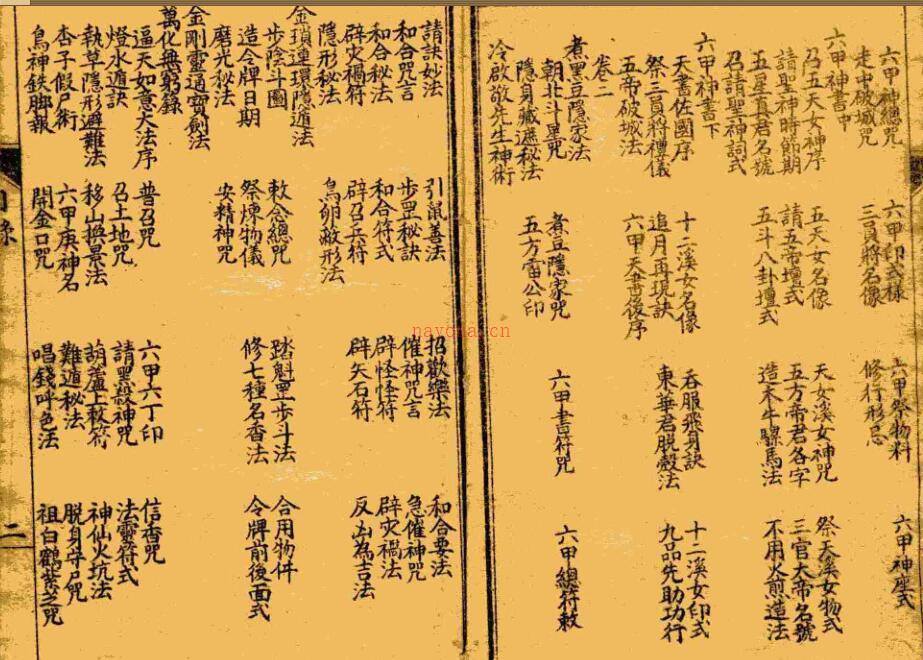 六甲神總咒 六甲印式樣 六甲祭物料 六甲神座式
走中破城咒 三員將名像 修行形忌
六甲神書中
召五天女神序 五天女名像 天女溪女神咒 祭天溪女物式
請聖神時節期 請五帝壇式 五方帝君各字 三官大帝名號
五星真君名號 五斗八卦壇式 造木牛騾馬法 不用火煎造法
召請聖神詞式
六甲神書下
天書佐國序 十二溪女名像 吞服飛身訣 十二溪女印式
祭三員將禮儀 追月再現訣 東華君脱殼法 九品先助功行
五帝破城法 六甲天書後序
卷二
煮黑豆隱家法
朝北斗罡咒 煮豆隱家咒 六甲書符咒 六甲總符敕
隱身藏遮秘法 五方雷公印
冷啟敬先生神術
請訣妙法 引鼠善法 招歡樂法 和合要法
和合咒言 步罡秘訣 催神咒言 急催神咒
和合秘法 和合符式 辟怪怪符 辟災禍法
辟災禍符 辟召兵符 辟矢石符 反凶為吉法
隱形秘法 鳥卵敵形法
金瑣連環隱遁法
步陰斗圖 敕念總咒 踏魁罡步斗法 合用物件
造令牌日期 祭煉物儀 修七種名香法 令牌前後面式
磨光秘法 安精神咒
金剛靈通寶劍法
萬化無窮錄
逼天如意大法序 普召咒 六甲六丁印 信香咒
燈水遁訣 召土地咒 請黑煞神咒 法靈符式
執草隱形避難法 移山換景法 葫蘆上敕符 神仙火坑法
杏子假尸術 六甲庚神名 難遁秘法 脱身守尸咒
鳥神鉄腳報 開金口咒 唱錢呼色法 祖白鶴紫芝咒
二
nayona.cn